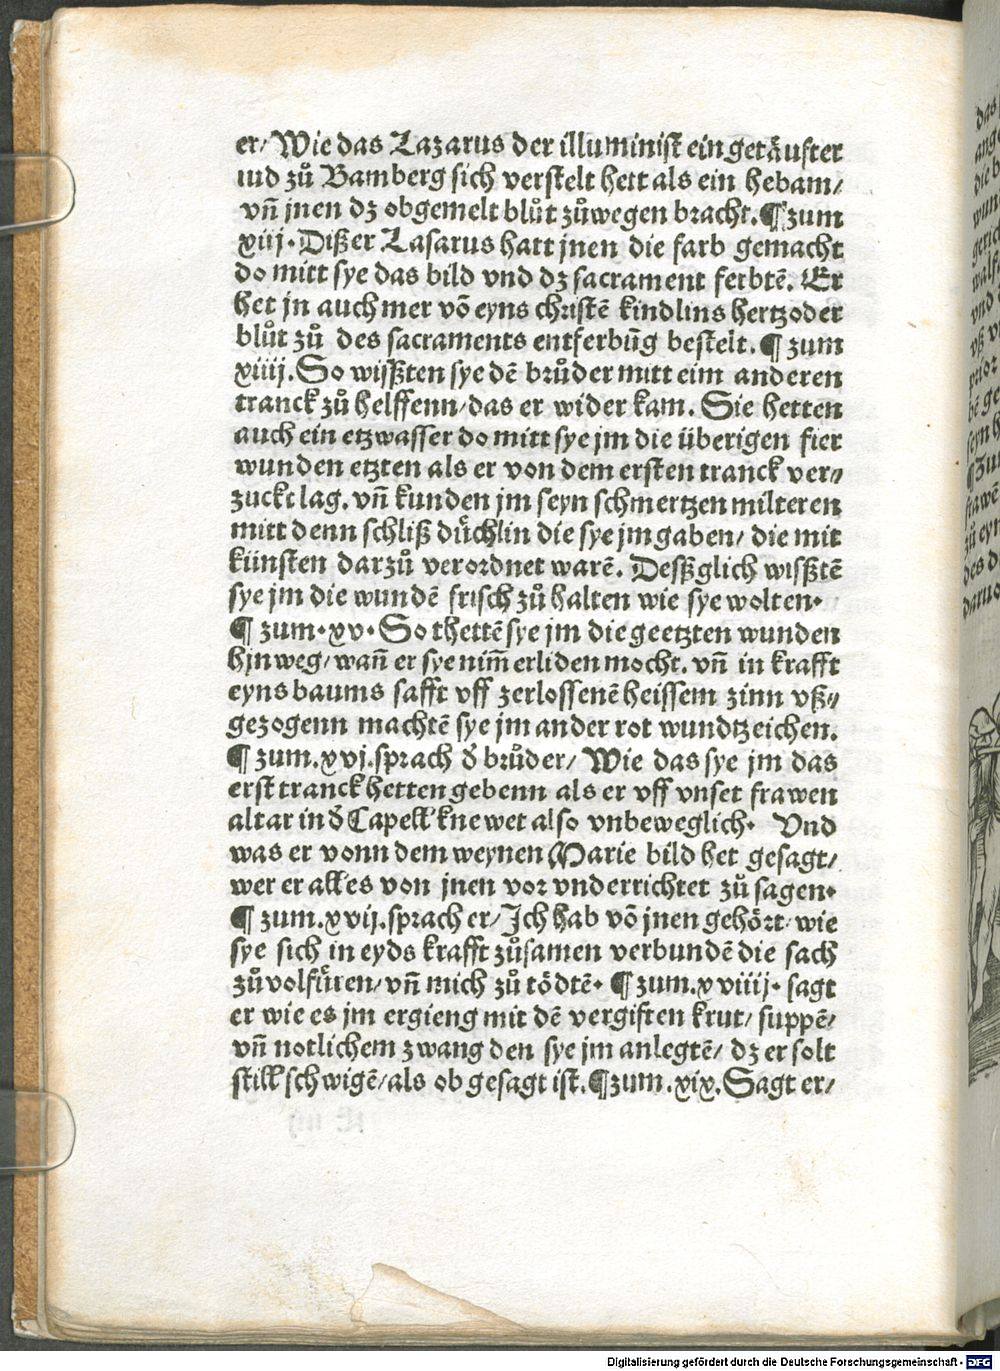 er/ Wie das Lazarus der illuminist ein getäufter
iud zů Bamberg sich verstelt hett als ein hebam/
vñ jnen dz obgemelt blůt zůwegen bracht. ¶ zum
xiij. Dißer Lasarus hatt jnen die farb gemacht
do mitt sye das bild vnd dz sacrament ferbtē. Er
het jn auch mer vō eyns christē kindlins hertz oder
blůt zů des sacraments entferbūg bestelt. ¶ zum
xiiij. So wißten sye dē brůder mitt eim anderen
tranck zů helffenn/ das er wider kam. Sie hetten
auch ein etzwasser do mitt sye jm die überigen fier
wunden etzten als er von dem ersten tranck ver/
zuckt lag. vñ kunden jm seyn schmertzen milteren
mitt denn schliß důchlin die sye jm gaben/ die mit
künsten darzů verordnet warē. Desßglich wißtē
sye jm die wundē frisch zů halten wie sye wolten.
¶ zum. xv. So thettē sye jm die geetzten wunden
hjnweg/ wañ er sye nim̄ erliden mocht. vñ in krafft
eyns baums safft vff zerlossenē heissem zinn vß//
gezogenn machtē sye jm ander rot wundtzeichen.
¶ zum. xvj. sprach d̄ brůder/ Wie das sye jm das
erst tranck hetten gebenn als er vff vnset frawen
altar in d̄ Capell knewet also vnbeweglich. Vnd
was er vonn dem weynen Marie bild het gesagt/
wer er alles von jnen vor vnderrichtet zů sagen.
¶ zum. xvij. sprach er/ Ich hab vō jnen gehört/ wie
sye sich in eyds krafft zůsamen verbundē die sach
zůvolfůren/ vñ mich zů tödtē. ¶ zum. xviiij. sagt
er wie es jm ergieng mit dē vergiften krut/ suppē/
vñ notlichem zwang den sye jm anlegtē/ dz er solt
still schwigē/ als ob gesagt ist. ¶ zum. xix. Sagt er/
Digitalisierung gefördert durch die Deutsche Forschungsgemeinschaft - DFG